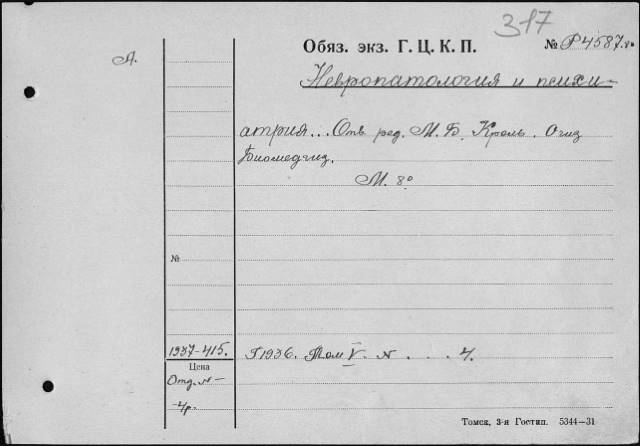 317
А.
Обяз. экз. Г. Ц. К. П.
№ Р4587
Невропатология и психи-
атрия... Отв ред. М. Б. Кроль. Огиз
Биомедгиз.
М. 8°
№
1937-415.
Г1936. Том V. N . . . 4.
Цена
Отд. N-
-4р.
Томск, 3-я Гостип. 5344—31